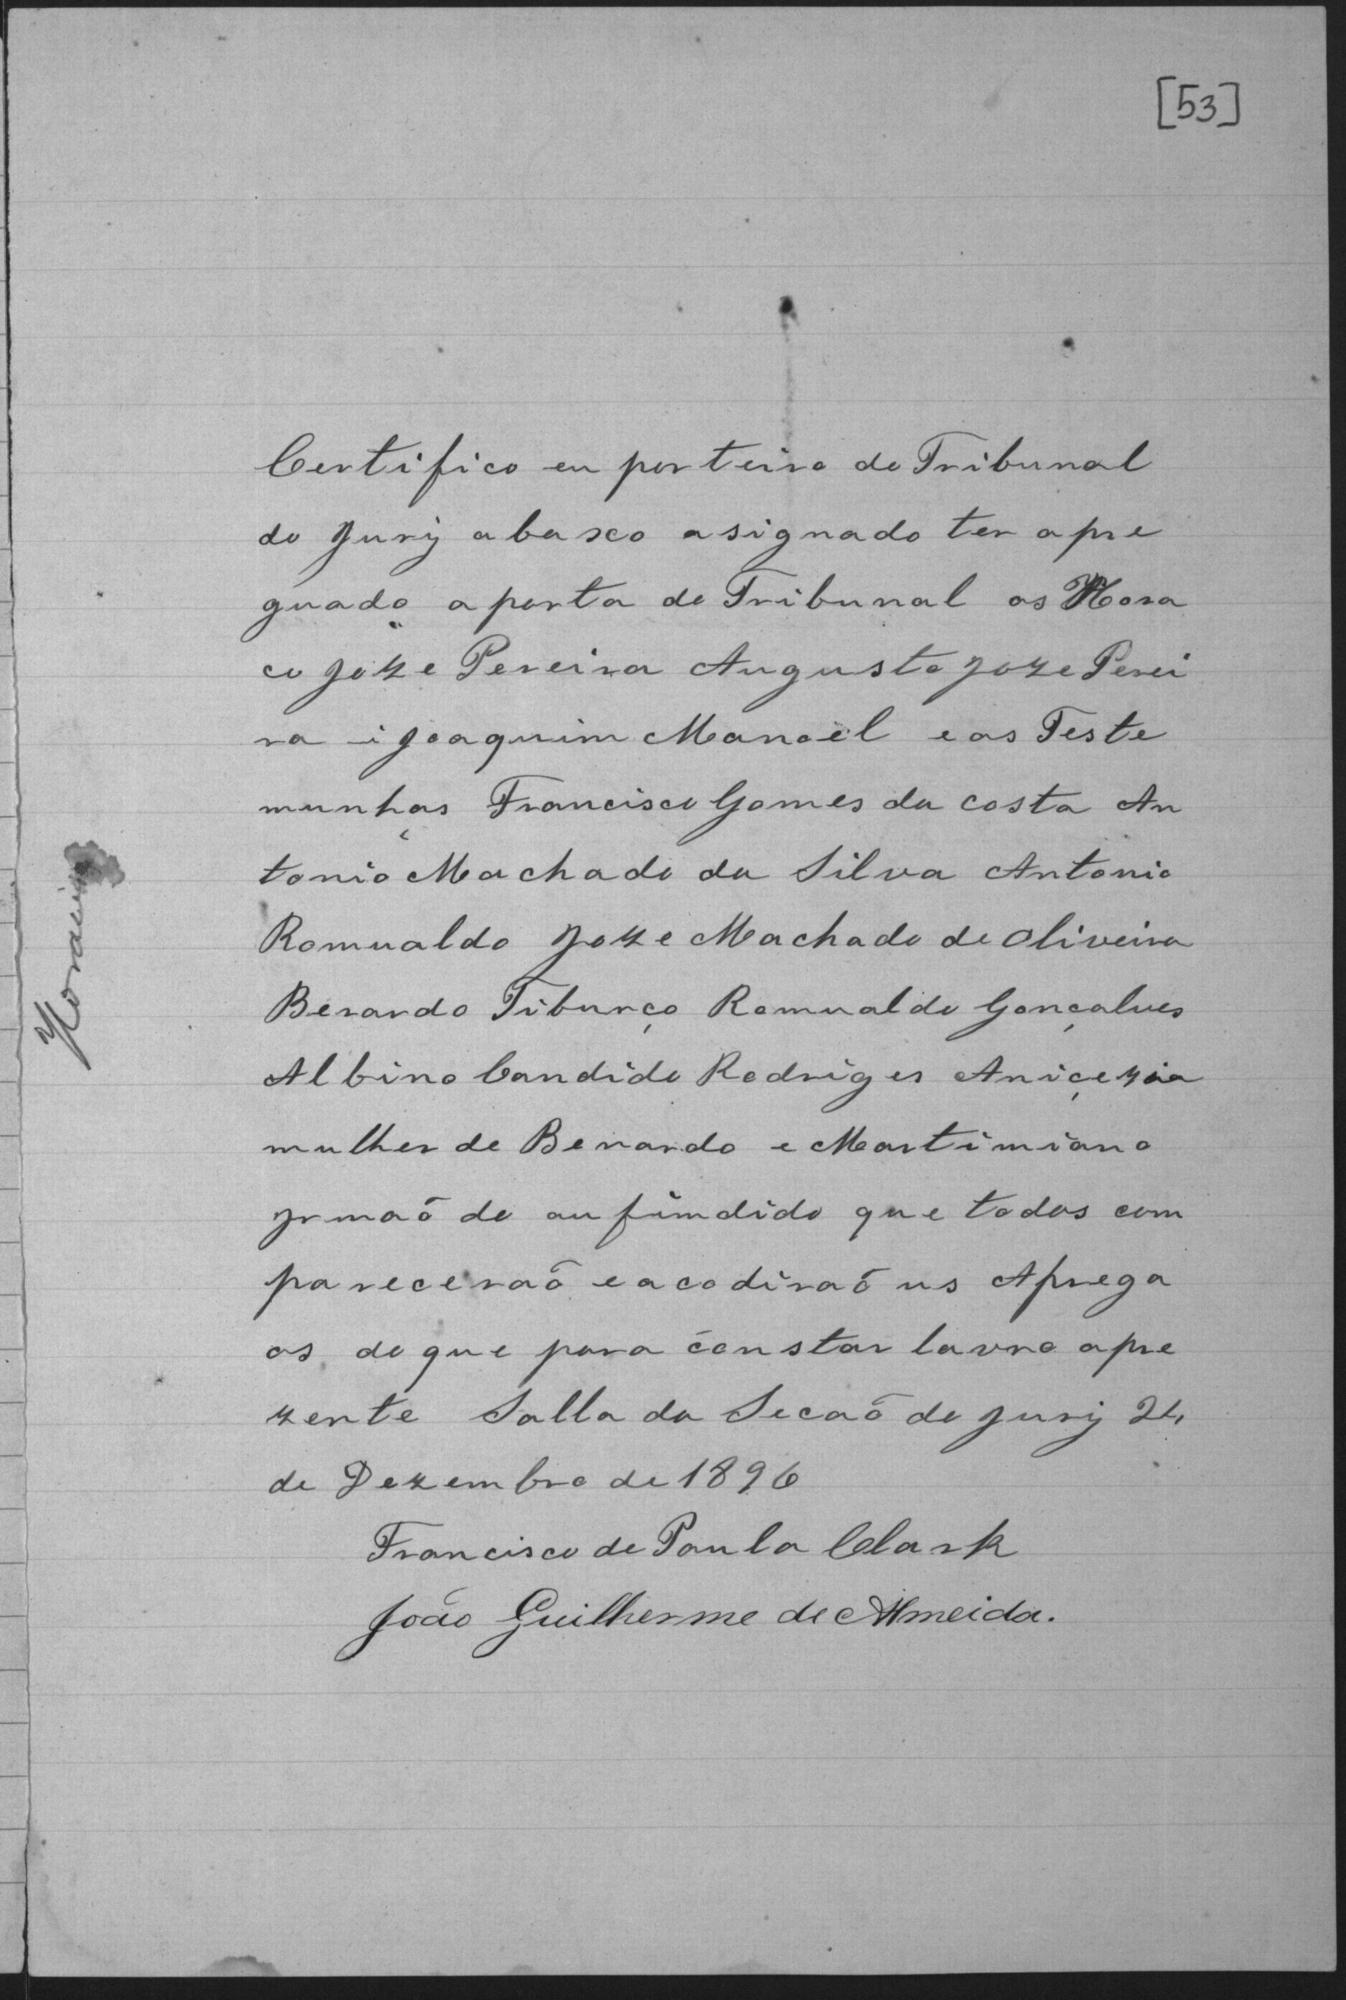 [53]
Certifico eu porteiro do Tribunal
do Jury abaxco asignado ter apre
guado a porta do Tribunal os Hora
co Joze Pereira Augusto Joze Perei
ra i Joaquim Manoel e as Teste
munhas Francisco Gomes da costa An
tonio Machado da Silva Antonio
Romualdo Joze Machado de Oliveira
Berardo Tiburço Romualdo Gonçalves
Albino Candido Rodriges Aniçezia
mulher de Benardo e Martimiano
yrmaõ do aufindido que todos com
pareceraõ e acodiraõ us Aprega
os do que para constar lavro apre
zente Salla da Secaõ do Jury 24
de Dezembro de 1896
Francisco de Paula Clark
João Guilherme de Almeida.